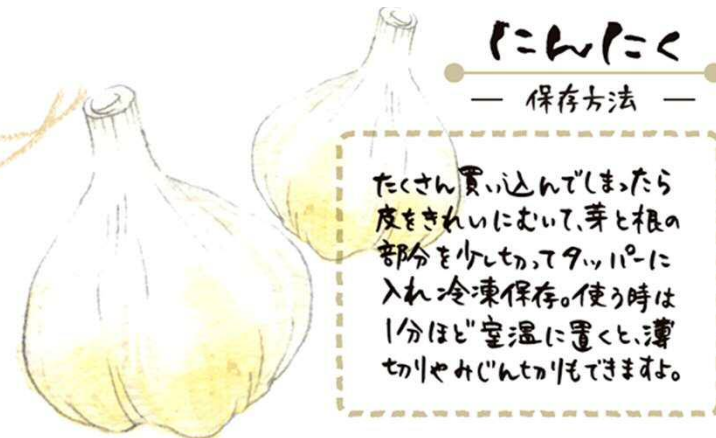 にんにく
― 保存方法 ―
たくさん買い込んでしまったら
皮をきれいにむいて、芽と根の
部分を少し切ってタッパーに
入れ冷凍保存。使う時は
1分ほど室温に置くと、薄
切りやみじん切りもできますよ。